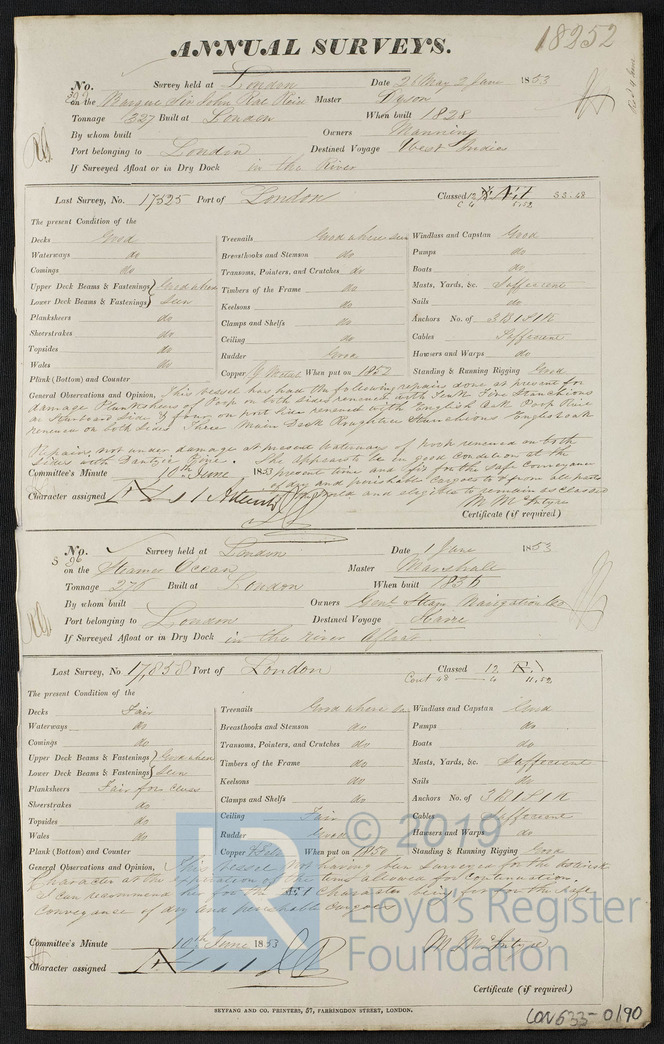 18252
ANNUAL SURVEYS.
No. Survey held at London Date 28 May 2 June 1853
on the Barque Sir John Rae Reid Master Dyson
Tonnage 337 Built at London When built 1828
By whom built Owners Manning
Port belonging to London Destined Voyage West Indies
If Surveyed Afloat or in Dry Dock in the River
Last Survey, No. 17525 Port of London Classed 12 Æ1 S.S. 48
The present Condition of the
Decks Good
Waterways do
Comings do
Upper Deck Beams & Fastenings Good where
Lower Deck Beams & Fastenings Seen
Planksheers do
Sheerstrakes do
Topsides do
Wales do
Plank (Bottom) and Counter
Treenails Good where seen
Breasthooks and Stemson do
Transoms, Pointers, and Crutches do
Timbers of the Frame do
Keelsons do
Clamps and Shelfs do
Ceiling do
Rudder Good
Copper When put on 1852
Windlass and Capstan Good
Pumps do
Boats do
Masts, Yards, &c. Sufficient
Sails do
Anchors No. of 3 B 1 S 1 K
Cables Sufficient
Hawsers and Warps do
Standing & Running Rigging Good
General Observations and Opinion, This vessel has had the following repairs done as present for
damage Planksheers of Poop on both sides renewed with Teak Five Stanchions
on Starboard Side & four on port side renewed with English Oak Poop
renewed on both sides Three Main Deck Roughtree Stanchions English oak
Repairs not under damage at present Waterway of Poop renewed on both
sides with Dantzic Pine. She appears to be in good condition at the
Committee's Minute 10th June 1853 present time and fit for the safe Conveyance
of dry and perishable cargoes to & from all parts
of the world and eligible to remain as classed
Character assigned
M McIntyre
Certificate (if required)
No. 96 Survey held at London Date 1 June 1853
on the Steamer Ocean Master Marshall
Tonnage 276 Built at London When built 1836
By whom built Owners Genl Steam Navigation Co
Port belonging to London Destined Voyage Havre
If Surveyed Afloat or in Dry Dock in the river Afloat
Last Survey, No 17858 Port of London Classed 12 Æ1
Cont 48 6 11.52
The present Condition of the
Decks Fair
Waterways do
Comings do
Upper Deck Beams & Fastenings Good where
Lower Deck Beams & Fastenings Seen
Planksheers Fair for class
Sheerstrakes do
Topsides do
Wales do
Plank (Bottom) and Counter
Treenails Good where
Breasthooks and Stemson do
Transoms, Pointers, and Crutches do
Timbers of the Frame do
Keelsons do
Clamps and Shelfs do
Ceiling Fair
Rudder Good
Copper When put on 1850
Windlass and Capstan Good
Pumps do
Boats do
Masts, Yards, &c. Sufficient
Sails do
Anchors No. of 3 B 1 S 1 K
Cables Sufficient
Hawsers and Warps do
Standing & Running Rigging Good
General Observations and Opinion, This vessel not having been surveyed for the desired
Character at the expiration of the time allowed for continuation.
I can recommend her for the Æ1 Character being fit for the safe
Conveyance of dry and perishable Cargoes
Committee's Minute 10th June 1853
M McIntyre
Character assigned
Certificate (if required)
© 2019
Lloyd's Register
Foundation
LR
SEYFANG AND CO. PRINTERS, 57, FARRINGDON STREET, LONDON.
LON633-0190